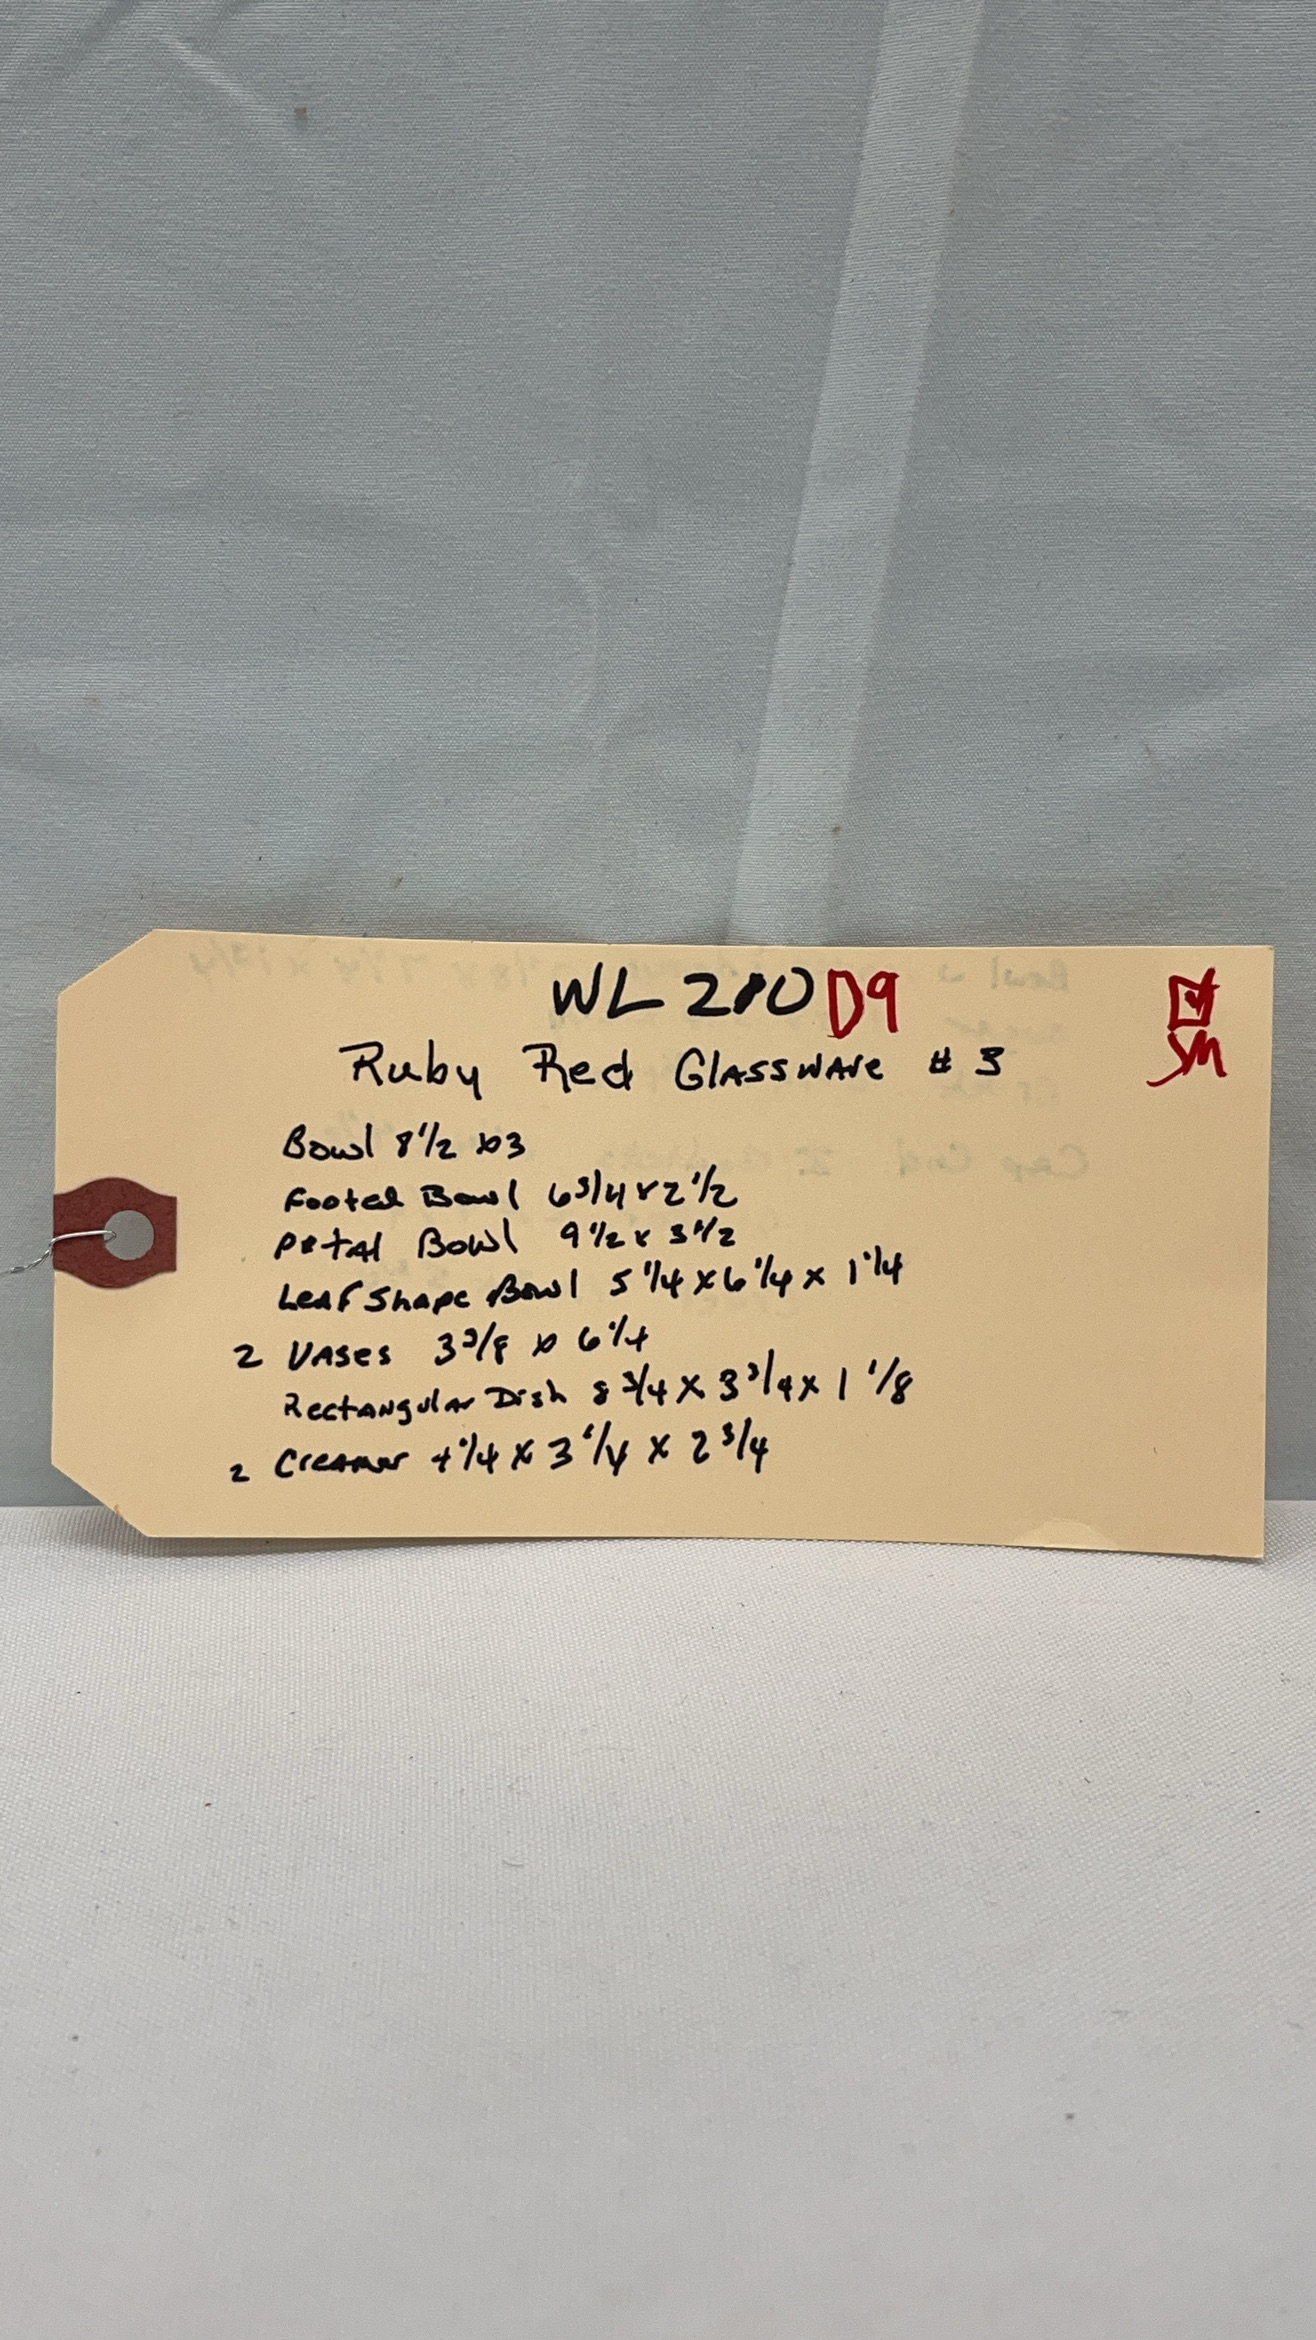 WL 210 D9
SM
Ruby Red Glassware # 3
Bowl 8 1/2 x 3
Footed Bowl 6 3/4 x 2 1/2
Petal Bowl 9 1/2 x 3 1/2
Leaf Shape Bowl 5 1/4 x 6 1/4 x 1 1/4
2 Vases 3 3/8 x 6 1/4
Rectangular Dish 8 3/4 x 3 3/4 x 1 1/8
2 Creamer 4 1/4 x 3 1/4 x 2 3/4